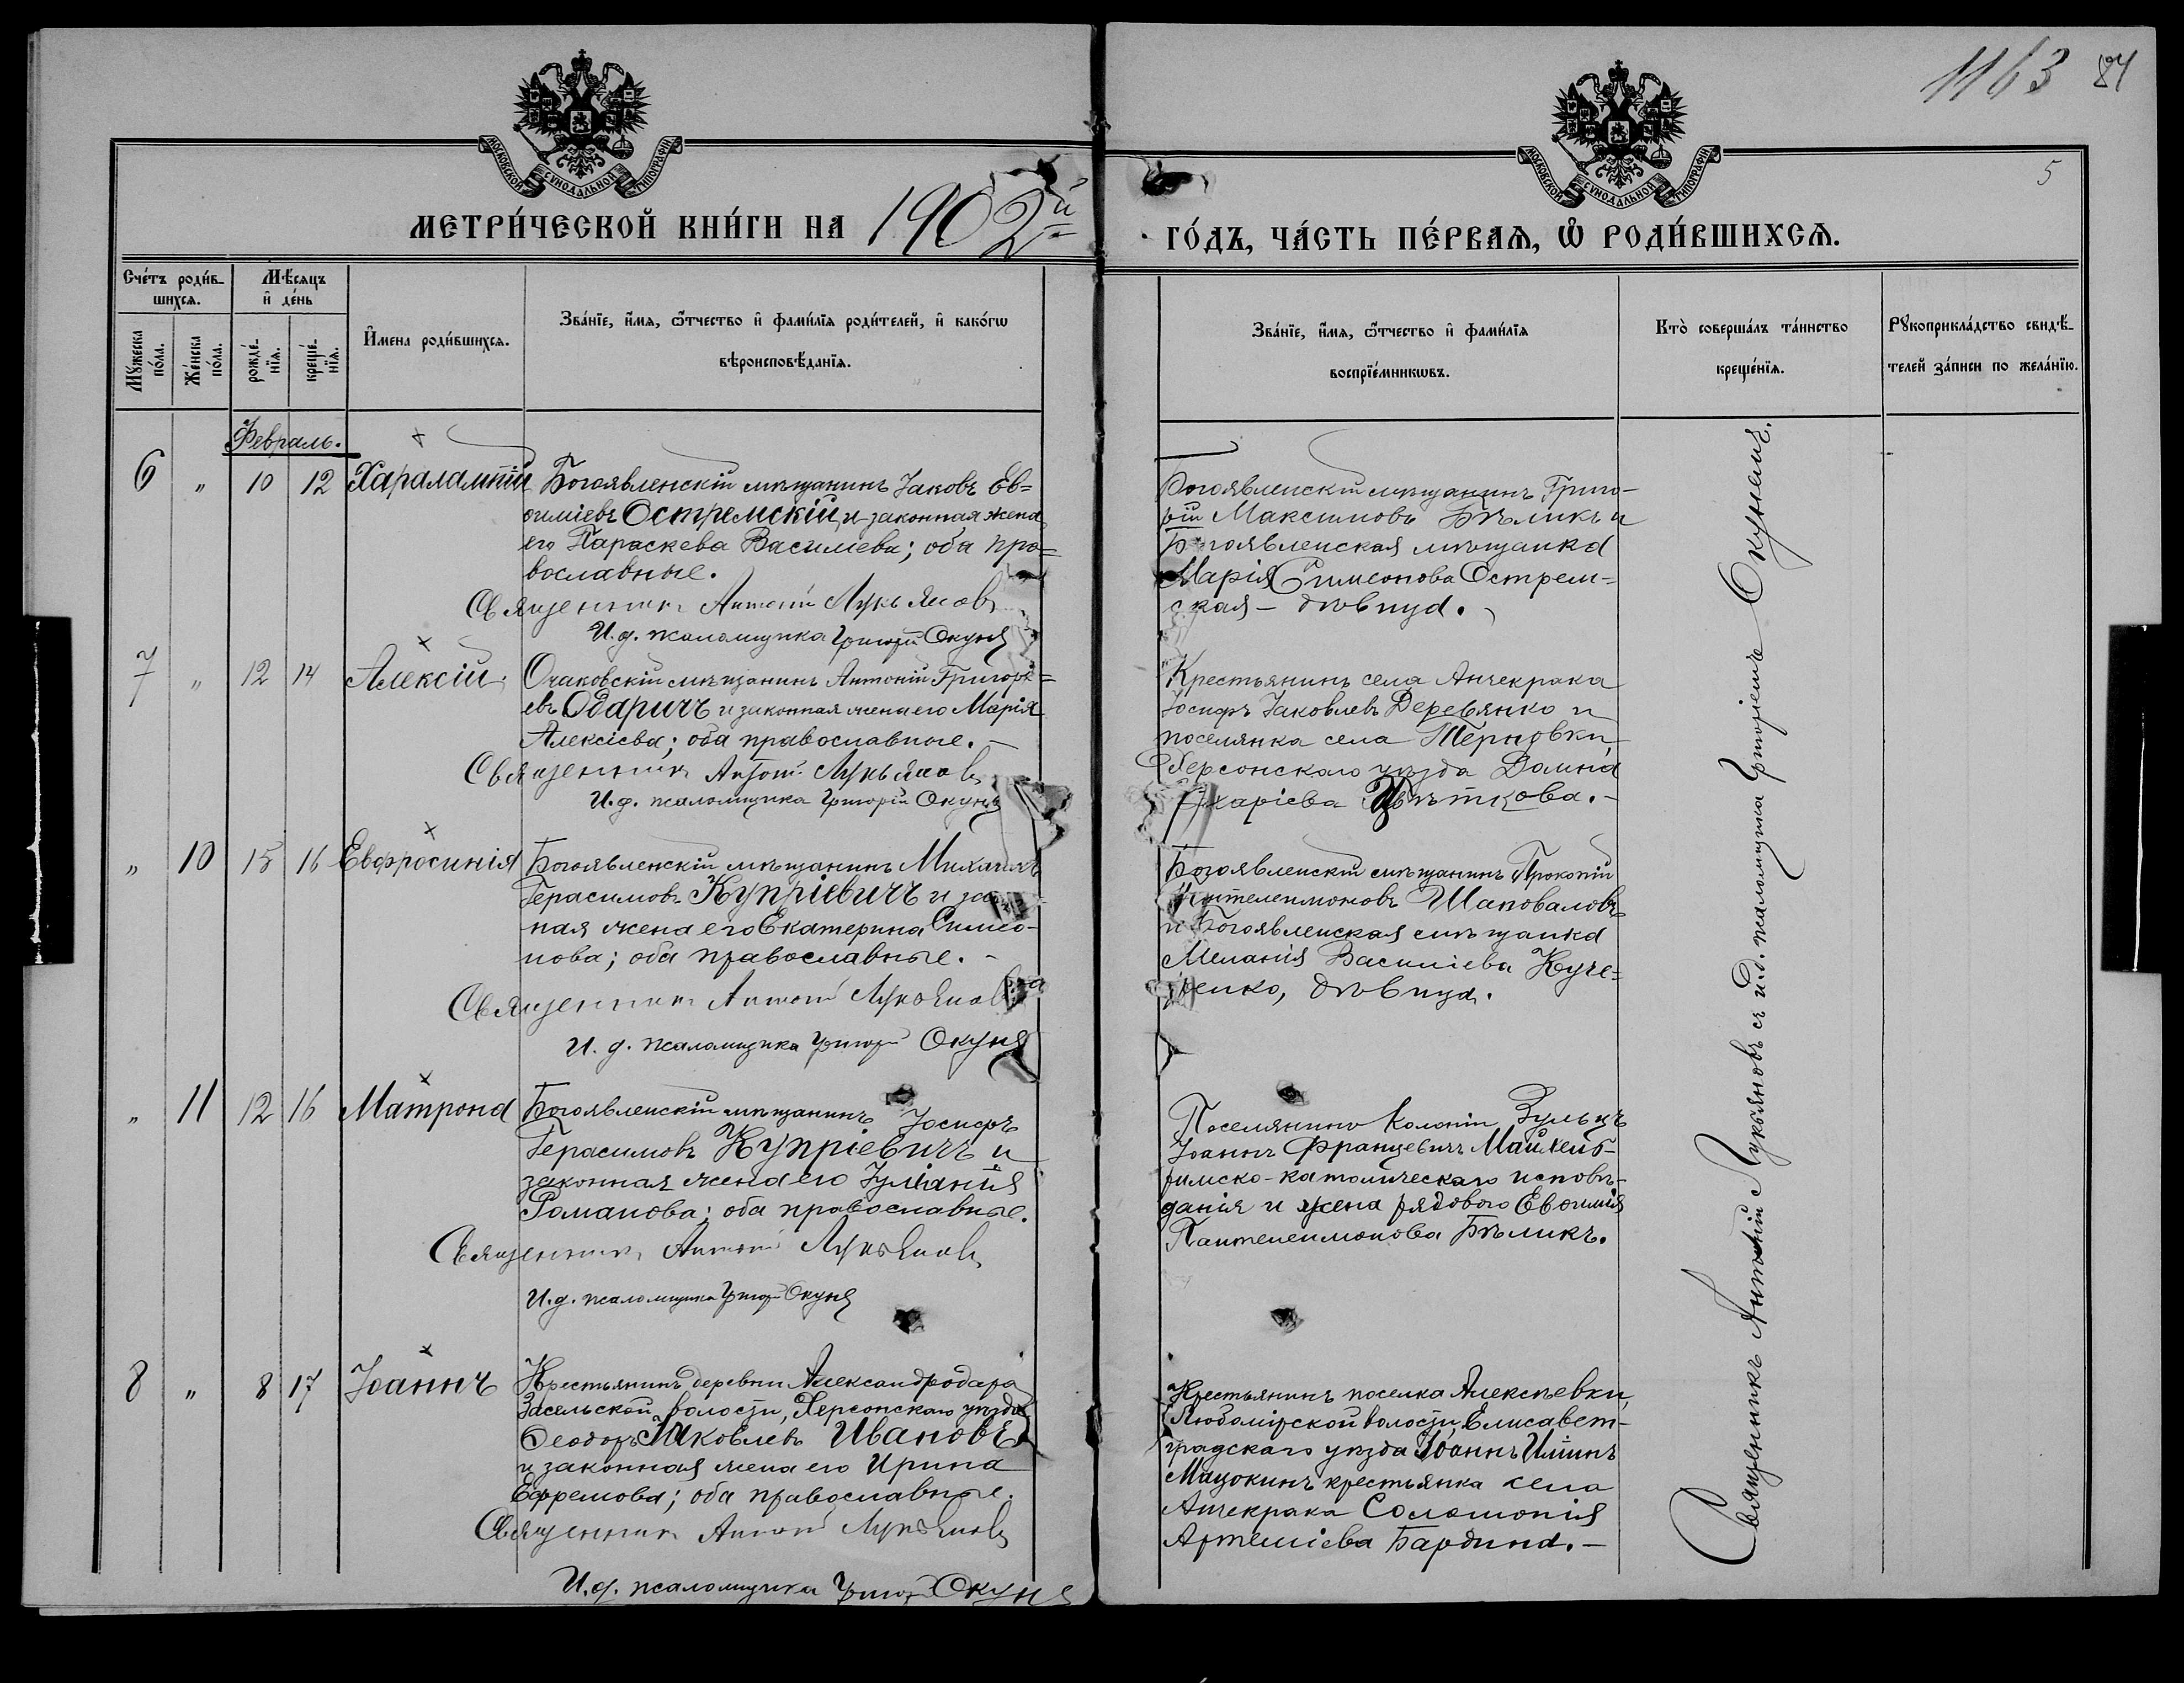 1163 84
5
МОСКОВСКОЙ СѴНОДАЛЬНОЙ ТИПОГРАФІИ
МОСКОВСКОЙ СѴНОДАЛЬНОЙ ТИПОГРАФІИ
МЕТРИ́ЧЕСКОЙ КНИ́ГИ НА 1902й
ГО́ДЪ, ЧА́СТЬ ПЕ́РВАѦ, Ѡ РОДИ́ВШИХСѦ.
Сче́тъ роди́в-
шихсѧ.
Мꙋжеска по́ла.
Же́нска по́ла.
Мѣ́сяцъ
и҆ де́нь
рожде́-
нїѧ.
креще́-
нїѧ.
И҆мена роди́вшихсѧ.
Зва́нїе, и҆́мѧ, ѻ҆́тчество и҆ фами́лїѧ роди́телей, и҆ како́гѡ
вѣроисповѣ́данїѧ.
Зва́нїе, и҆́мѧ, ѻ҆́тчество и҆ фами́лїѧ
воспрїе́мникѡвъ.
Кто̀ соверша́лъ та́инство
креще́нїѧ.
Рꙋкоприкла́дство свидѣ́-
телей за́писи по жела́нїю.
Февраль.
6 " 10 12 Харалампій Богоявленскій мѣщанинъ Іаковъ Ев=
ѳиміевъ Остремскій и законная жена
его Параскева Василіева; оба пра=
вославные.
Священникъ Антоній Лукьяновъ
И. д. псаломщика Григорій Окунь
Богоявленскій мѣщанинъ Григо-
рій Максимовъ Бѣликъ и
Богоявленская мѣщанка
Марія Симеонова Острем=
ская - дѣвица.
7 " 12 14 Алексій Очаковскій мѣщанинъ Антоній Григорь=
евъ Одаричъ и законная жена его Марія
Алексіева; оба православные. -
Священникъ Антоній Лукьяновъ
И. д. псаломщика Григорій Окунь
Крестьянинъ села Анчекрака
Іосифъ Іаковлевъ Деревянко и
поселянка села Терновки,
Херсонскаго уѣзда Домна
Захаріева Цвѣткова. -
" 10 15 16 Евфросинія Богоявленскій мѣщанинъ Михаилъ
Герасимовъ Купріевичъ и за
ная жена его Екатерина Симео-
нова; оба православные. -
Священникъ Антоній Лукьяновъ
И. д. псаломщика Григорій Окунь
Богоявленскій мѣщанинъ Прокопій
Пантелеимоновъ Шаповаловъ
и Богоявленская мѣщанка
Меланія Василіева Куче=
ренко, дѣвица.
" 11 12 16 Матрона Богоявленскій мѣщанинъ Іосифъ
Герасимовъ Купріевичъ и
законная жена его Іуліанія
Романова; оба православные.
Священникъ Антоній Лукьяновъ
И. д. псаломщика Григорій Окунь
Поселянинъ Колоніи Зульцъ
Іоаннъ Францевичъ
римско-католическаго исповѣ-
данія и жена рядового Евѳимія
Пантелеимонова Бѣликъ.
8 " 8 17 Іоаннъ Крестьянинъ деревни Александродара
Засельской волости, Херсонскаго уѣзда
Ѳеодоръ Іаковлевъ Ивановъ
и законная жена его Ирина
Ефремова; оба православные.
Священникъ Антоній Лукьяновъ
И. д. псаломщика Григорій Окунь
Крестьянинъ поселка Алексѣевки,
Любомірской волости, Елисавет-
градскаго уѣзда Іоаннъ Иліинъ
Мацокинъ крестьянка села
Анчекрака Соломонія
Артеміева Бардина. -
Священникъ Антоній Лукьяновъ съ и.д. псаломщика Григоріемъ Окунемъ.